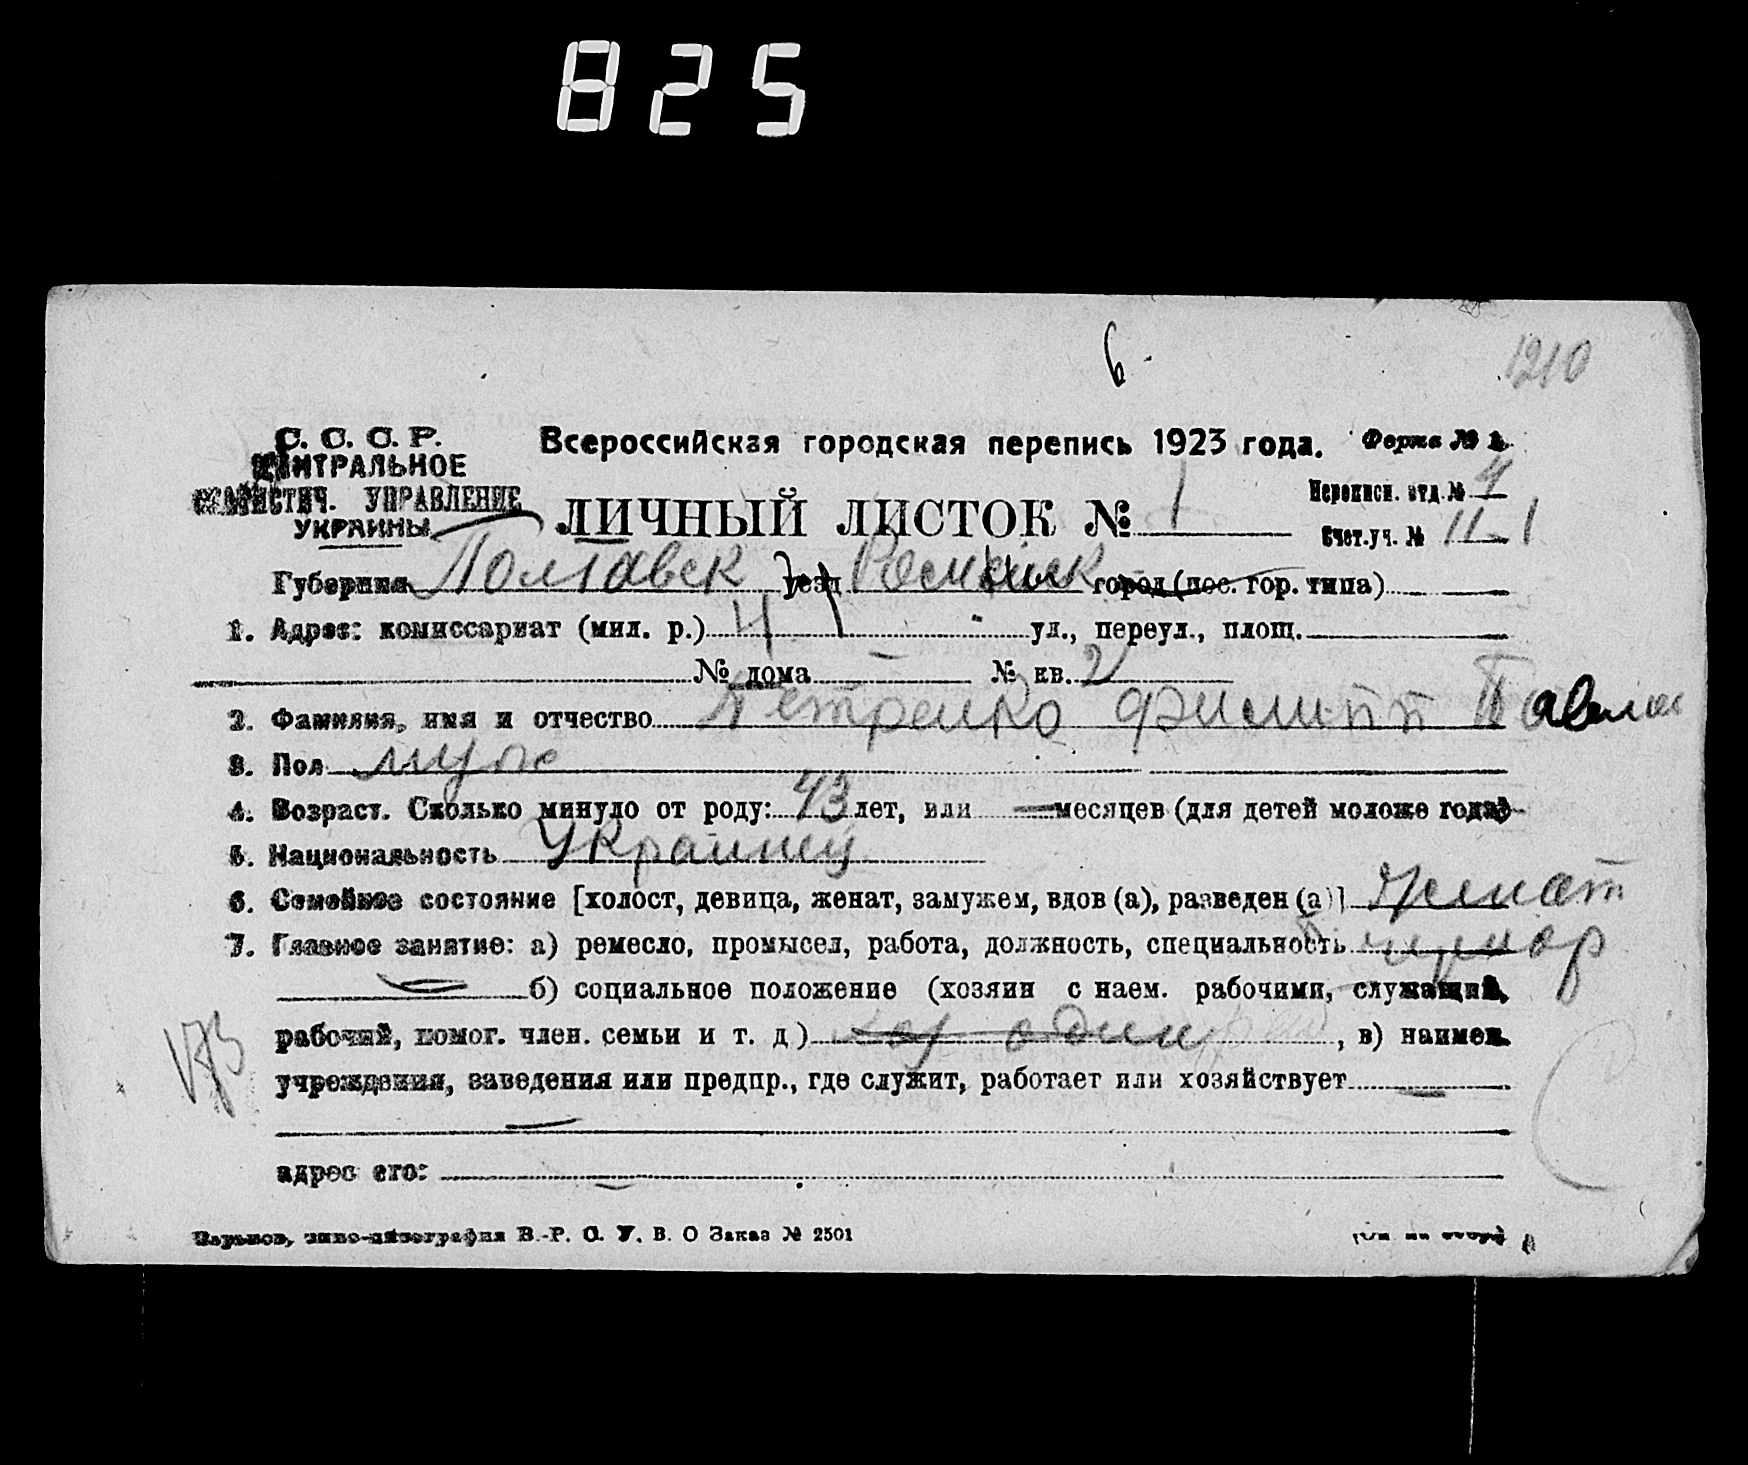 825
6.
1210
С. С. С. Р.
ЦЕНТРАЛЬНОЕ
СТАТИСТИЧ. УПРАВЛЕНИЕ
УКРАИНЫ
Всероссийская городская перепись 1923 года.
Форма № 1.
ЛИЧНЫЙ ЛИСТОК № 1
Переписн. отд. № 4
Счет.уч. № 11-1
Губерния Полтавск уезд Роменск город (пос. гор. типа)
1. Адрес: комиссариат (мил. р.) 4 ул., переул., площ.
№ дома — № кв. 2
2. Фамилия, имя и отчество Петренко Филипп Павлов
3. Пол муж
4. Возраст. Сколько минуло от роду: 43 лет, или — месяцев (для детей моложе года)
5. Национальность Украинец
6. Семейное состояние [холост, девица, женат, замужем, вдов (а), разведен (а)] Женат
7. Главное занятие: а) ремесло, промысел, работа, должность, специальность
— б) социальное положение (хозяин с наем. рабочими, служащий,
рабочий, помог. член. семьи и т. д) один, в) наимен.
учреждения, заведения или предпр., где служит, работает или хозяйствует —
—
адрес его: —
Харьков, типо-литография В.-Р. С. У. В. О Заказ № 2501